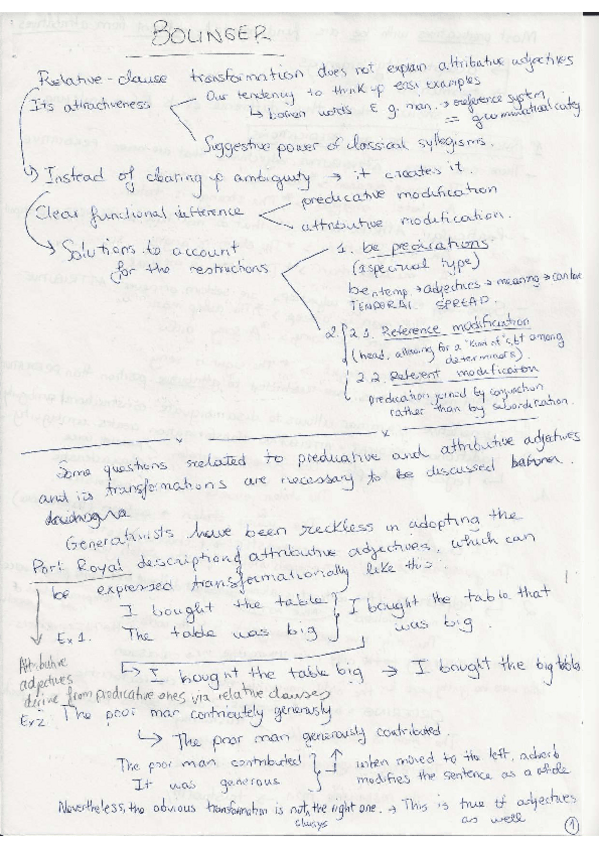 BOLINGER
Relative-clause transformation does not explain attributive adjectives
Its attractiveness
Our tendency to think up easy examples
↳ barren words E.g. man → reference system
== grammatical categ
Suggestive power of classical syllogisms.
Instead of clearing up ambiguity → it creates it.
Clear functional difference
predicative modification
attributive modification.
Solutions to account
for the restrictions
1. be predications
(special type)
be temp → adjectives → meaning → can have
TEMPORAL SPREAD.
2. 2.1. Reference modification
(head, allowing for a "kind of", bt among
determiners).
2.2. Referent modification
predication joined by conjunction
rather than by subordination.
Some questions related to predicative and attributive adjetives
and its transformations are necessary to be discussed
Generativists have been reckless in adopting the
Port Royal description of attributive adjectives, which can
be expressed transformationally like this:
I bought the table
I bought the table that
Ex 1.
The table was big
was big.
↳ I bought the table big → I bought the big table
Attributive
adjectives
derive from predicative ones via relative clauses
Ex2. The poor man contributely generously
↳ The poor man generously contributed.
The poor man contributed
It was generous
when moved to the left, adverb
modifies the sentence as a whole
Nevertheless, the obvious transformation is not always the right one. → This is true of adjectives
as well
1